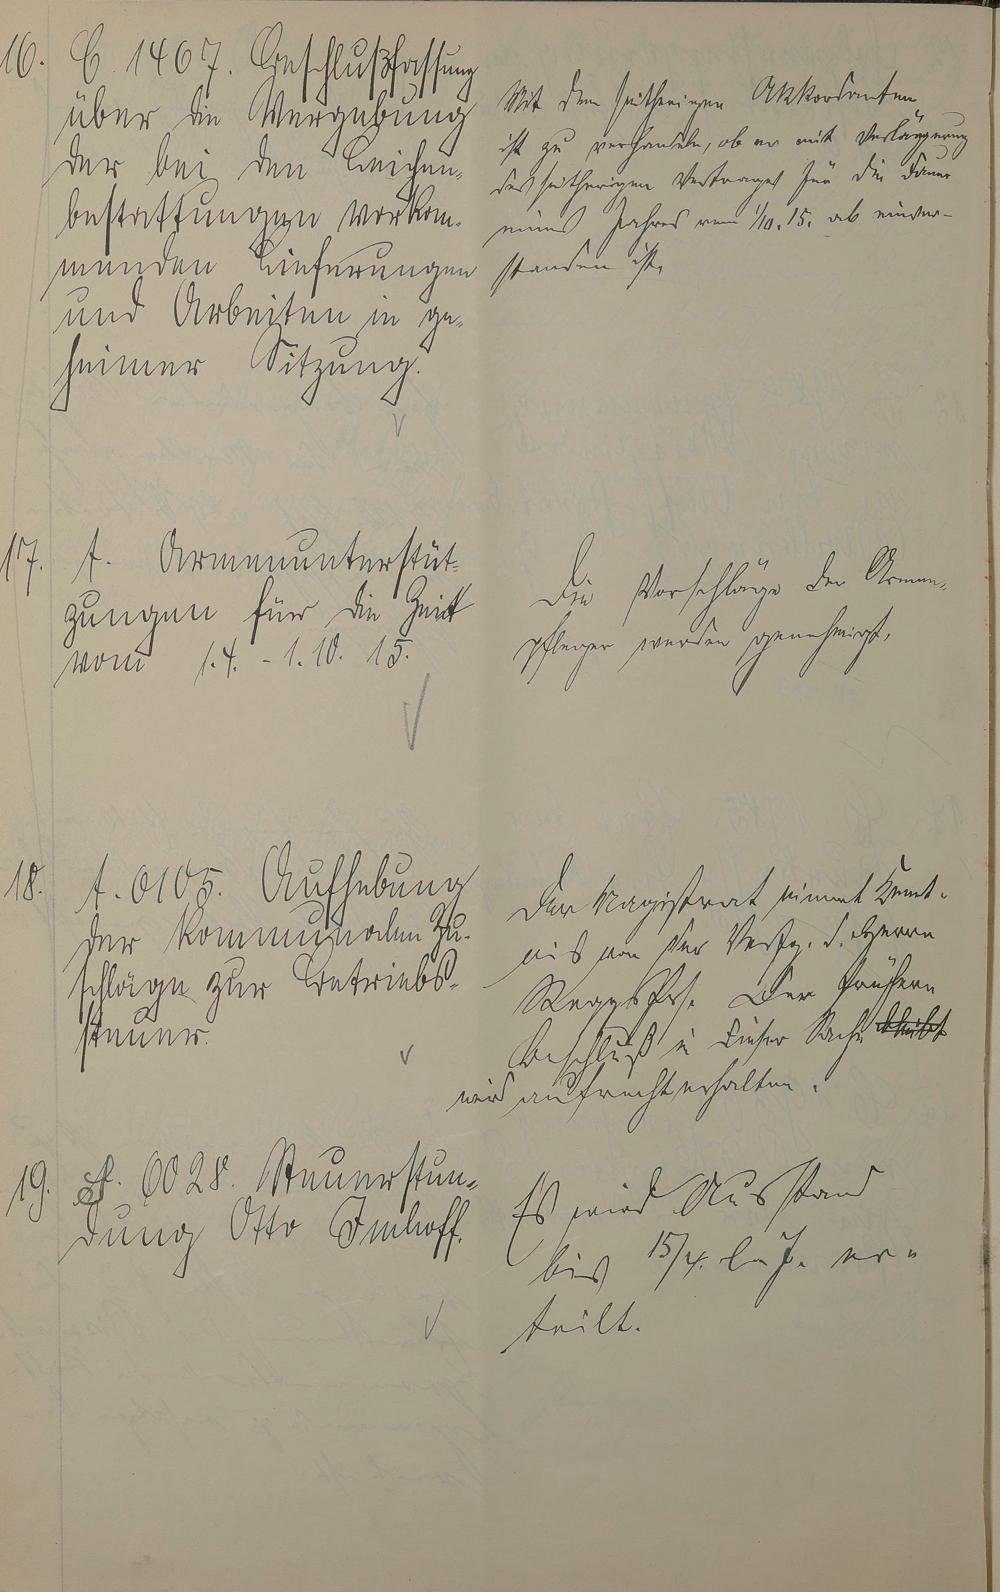 16. C. 1467. Beschlußfassung
über die Vergebung
der bei den Leichen-
bestattungen vorkom-
menden Lieferungen
und Arbeiten in ge-
heimer Sitzung.
Mit dem seitherigen Akkordanten
ist zu verhandeln, ob er mit Verlängerung
des seitherigen Vertrages für die Dauer
eines Jahres vom 1/10. 15. ab einver-
standen ist.
17. A. Armenunterstüt-
zungen für die Zeit
vom 1.4. - 1.10. 15.
Die Vorschläge der Armen-
pfleger werden genehmigt.
18. A. 0105. Aufhebung
der kommunalen Zu-
schläge zur Betriebs-
steuer.
Der Magistrat nimmt Kennt-
nis von der Verfg. d. Herrn
Beschluß in dieser Sache bleibt
wird aufrecht erhalten.
19. 0028. Steuerstun-
dung Otto Imhoff.
Es wird Ausstand
bis 15/4. l. J. er-
teilt.